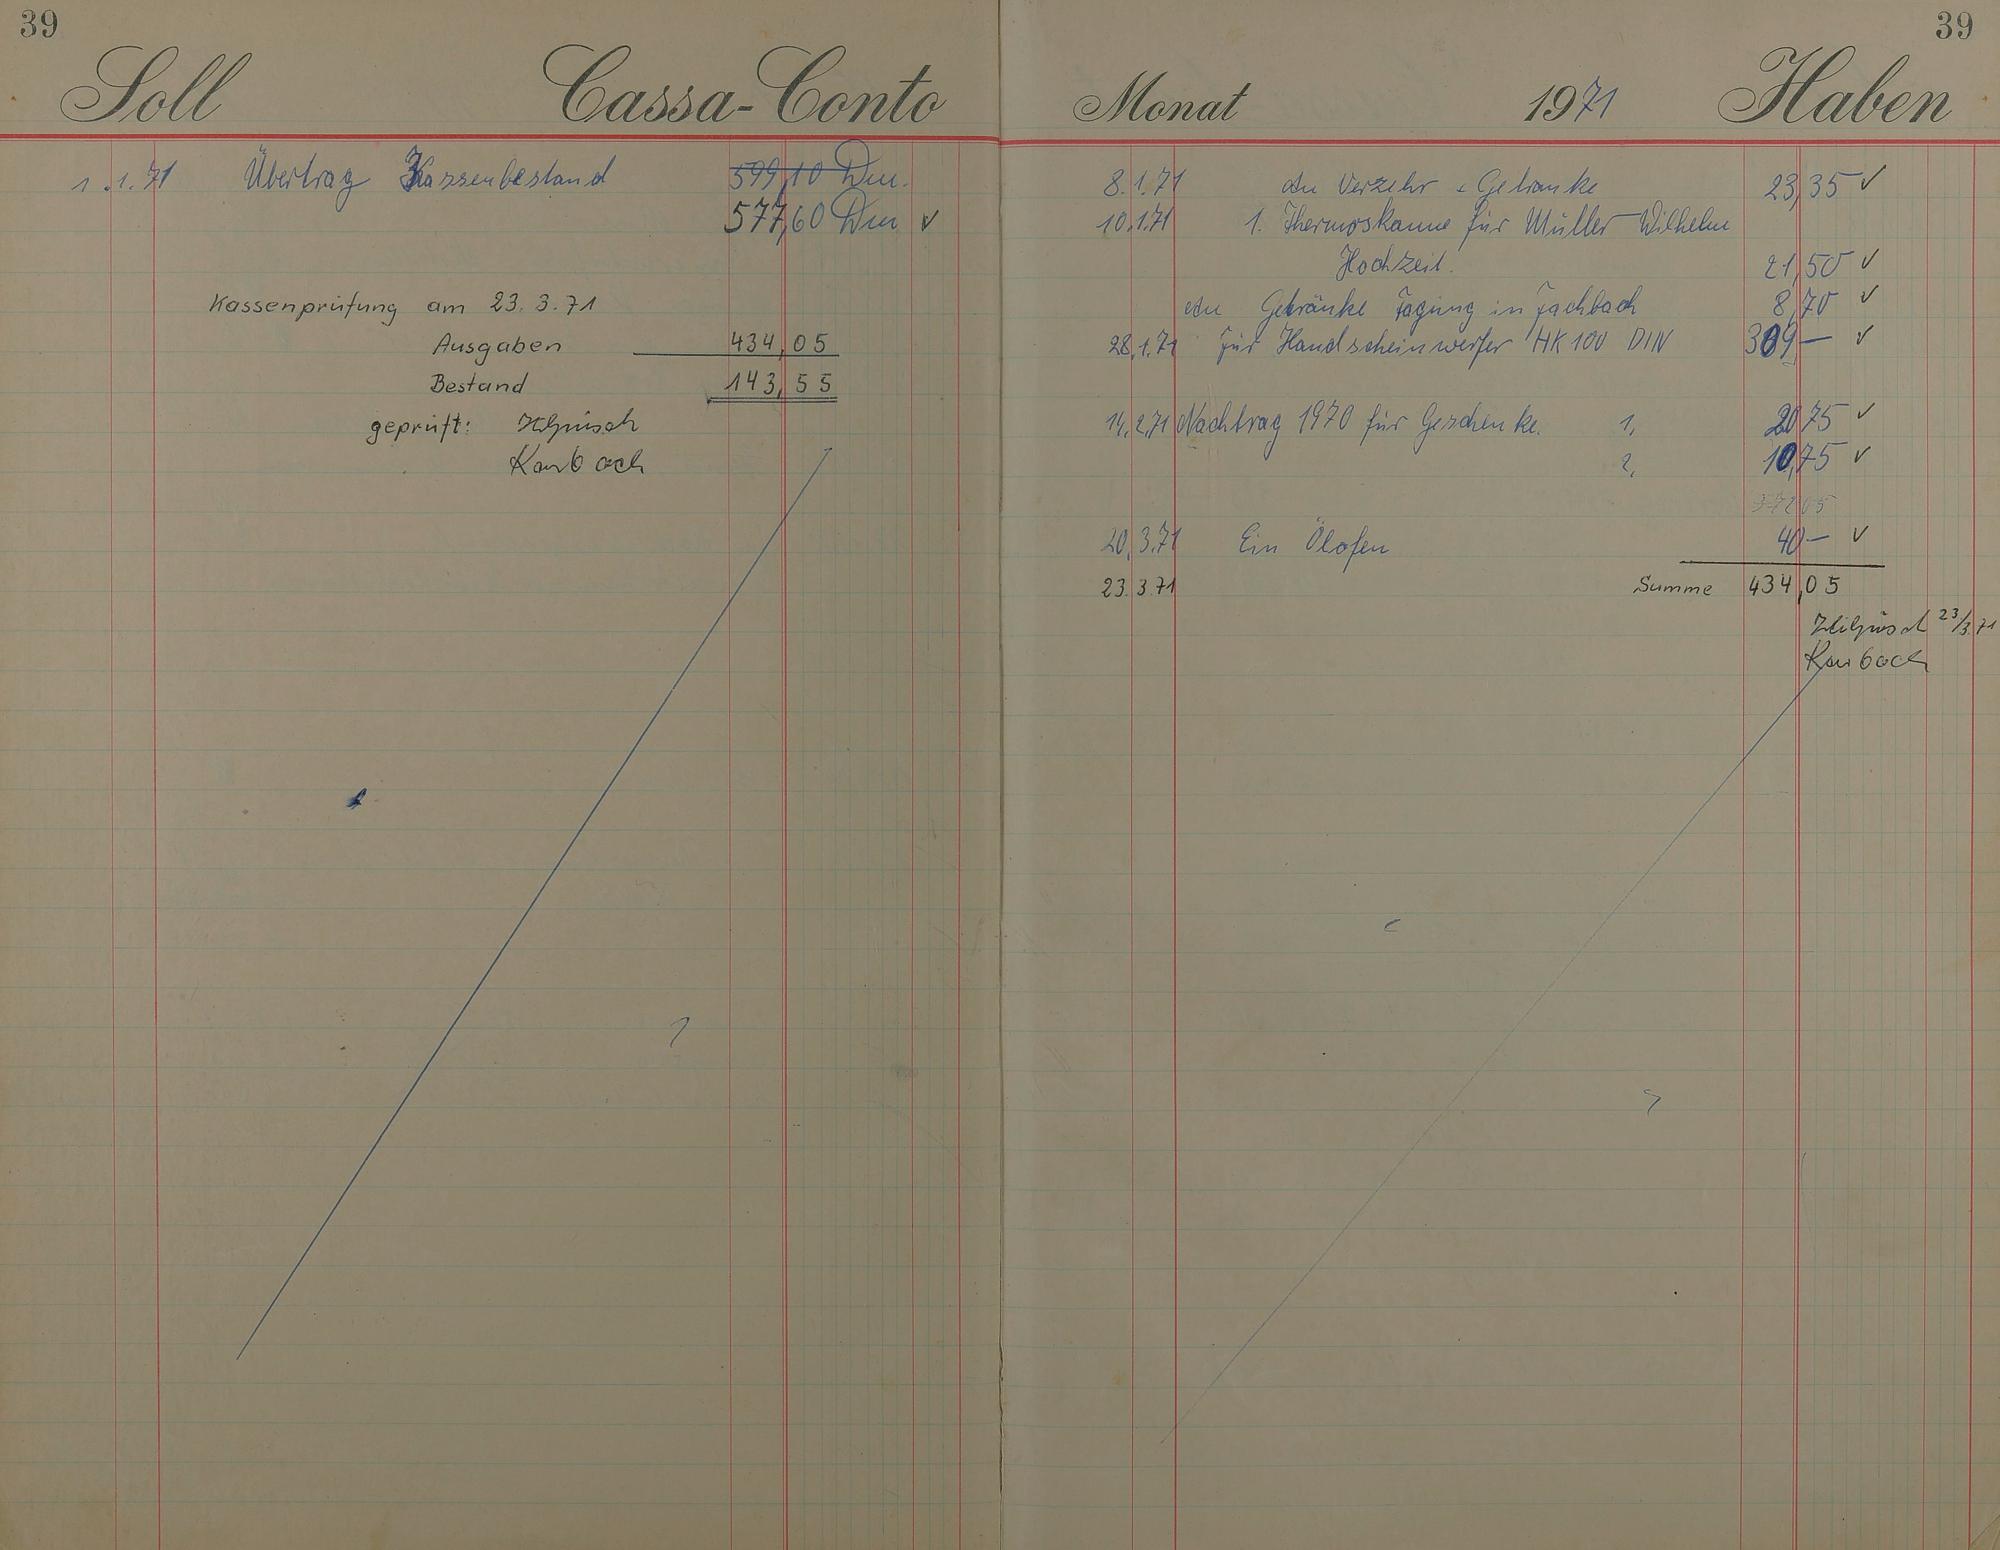 39
Soll Cassa-Conto
1.1.71 Übertrag Kassenbestand 599,10 Dm.
577,60 Dm ✓
Kassenprüfung am 23.3.71
Ausgaben 434,05
Bestand 143,55
geprüft:
Karbach
39
Monat 1971 Haben
8.1.71 An Verzehr u Getranke 23,35 ✓
10.1.71 1. Thermoskanne für Müller Wilhelm
Hochzeit. 21,50 ✓
An Getränke Tagung in Fachbach 8,70 ✓
28.1.71 für Handscheinwerfer HK 100 DIN 309,— ✓
14.2.71 Nachtrag 1970 für Geschenke. 1, 20,75 ✓
2, 10,75 ✓
20.3.71 Ein Ölofen 40,— ✓
23.3.71 Summe 434,05
23/3.71
Karbach